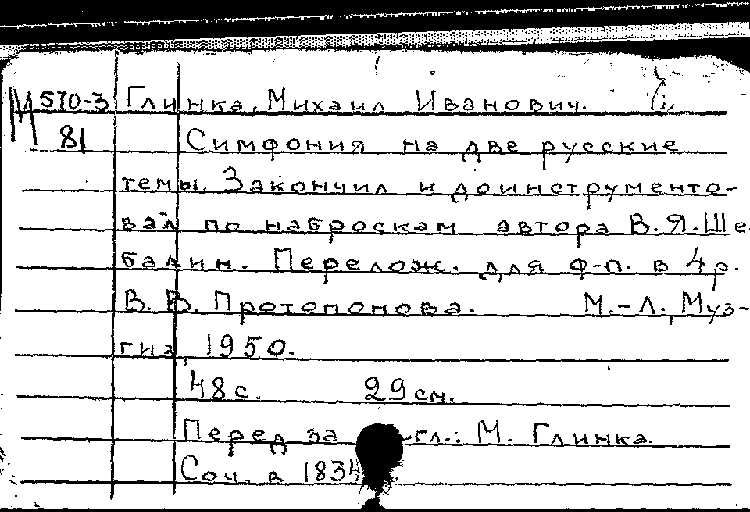 М 570-3 Глинка, Михаил Иванович.
81 Симфония на две русские
темы. Закончил и доинструменто-
вал по наброскам автора В.Я.Ше-
балин. Перелож. для ф-п. в 4р.
В. В. Протопопова. М.-Л., Муз-
гиз, 1950.
48 с. 29 см.
Перед за гл.: М. Глинка.
Соч. в 1834